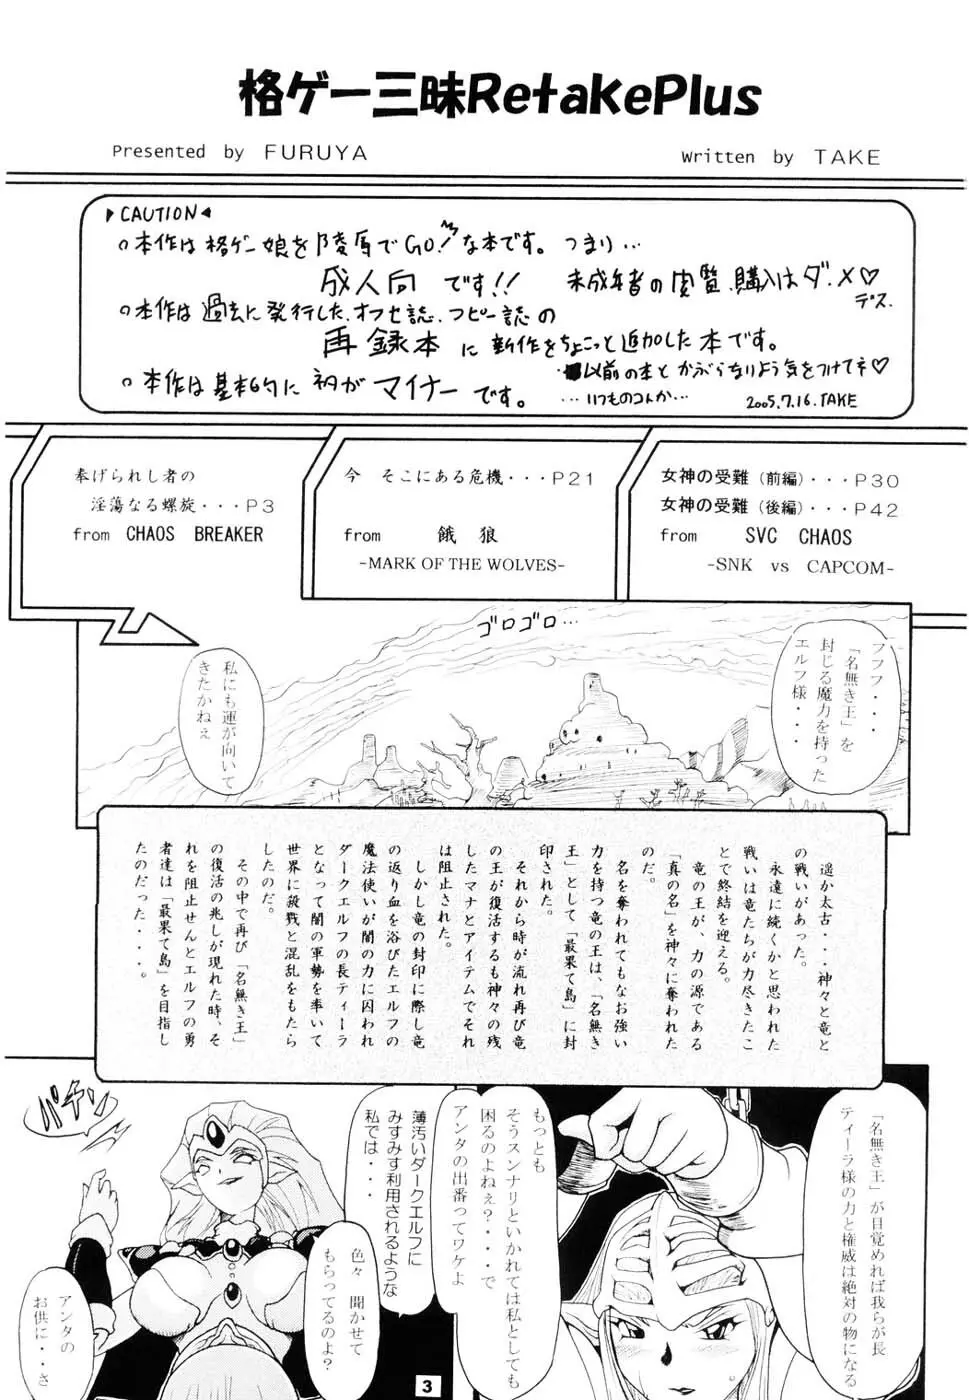 格ゲー三昧RetakePlus
Presented by FURUYA
Written by TAKE
▶CAUTION◀
○本作は格ゲー娘を陵辱でGO!な本です。つまり…
成人向です!! 未成年者の閲覧、購入はダ・メ♡
デス.
○本作は過去に発行した、オフセ誌、コピー誌の
再録本に新作をちょこっと追加した本です。
・以前の本とかぶらなりよう気をつけてネ♡
○本作は基本的にネタがマイナーです。
…いつものコんか…
2005.7.16.TAKE
奉げられし者の
淫蕩なる螺旋・・・P3
from CHAOS BREAKER
今 そこにある危機・・・P21
from 餓 狼
-MARK OF THE WOLVES-
女神の受難（前編）・・・P30
女神の受難（後編）・・・P42
from SVC CHAOS
-SNK vs CAPCOM-
ゴロゴロ…
フフフ・・・
「名無き王」を
封じる魔力を持った
エルフ様・・・
私にも運が向いて
きたかねぇ
遥か太古・・・神々と竜と
の戦いがあった。
永遠に続くかと思われた
戦いは竜たちが力尽きたこ
とで終結を迎える。
竜の王が、力の源である
「真の名」を神々に奪われた
のだ。
名を奪われてもなお強い
力を持つ竜の王は、「名無き
王」として「最果て島」に封
印された。
それから時が流れ再び竜
の王が復活するも神々の残
したマナとアイテムでそれ
は阻止された。
しかし竜の封印に際し竜
の返り血を浴びたエルフの
魔法使いが闇の力に囚われ
ダークエルフの長ティーラ
となって闇の軍勢を率いて
世界に殺戮と混乱をもたら
したのだ。
その中で再び「名無き王」
の復活の兆しが現れた時、そ
れを阻止せんとエルフの勇
者達は「最果て島」を目指し
たのだった・・・・。
「名無き王」が目覚めれば我らが長
ティーラ様の力と権威は絶対の物になる
もっとも
そうスンナリといかれては私としても
困るのよねぇ?・・・で
アンタの出番ってワケよ
薄汚いダークエルフに
みすみす利用されるような
私では・・・
色々 聞かせて
もらってるのよ?
パチン
アンタの
お供に・・さ
3